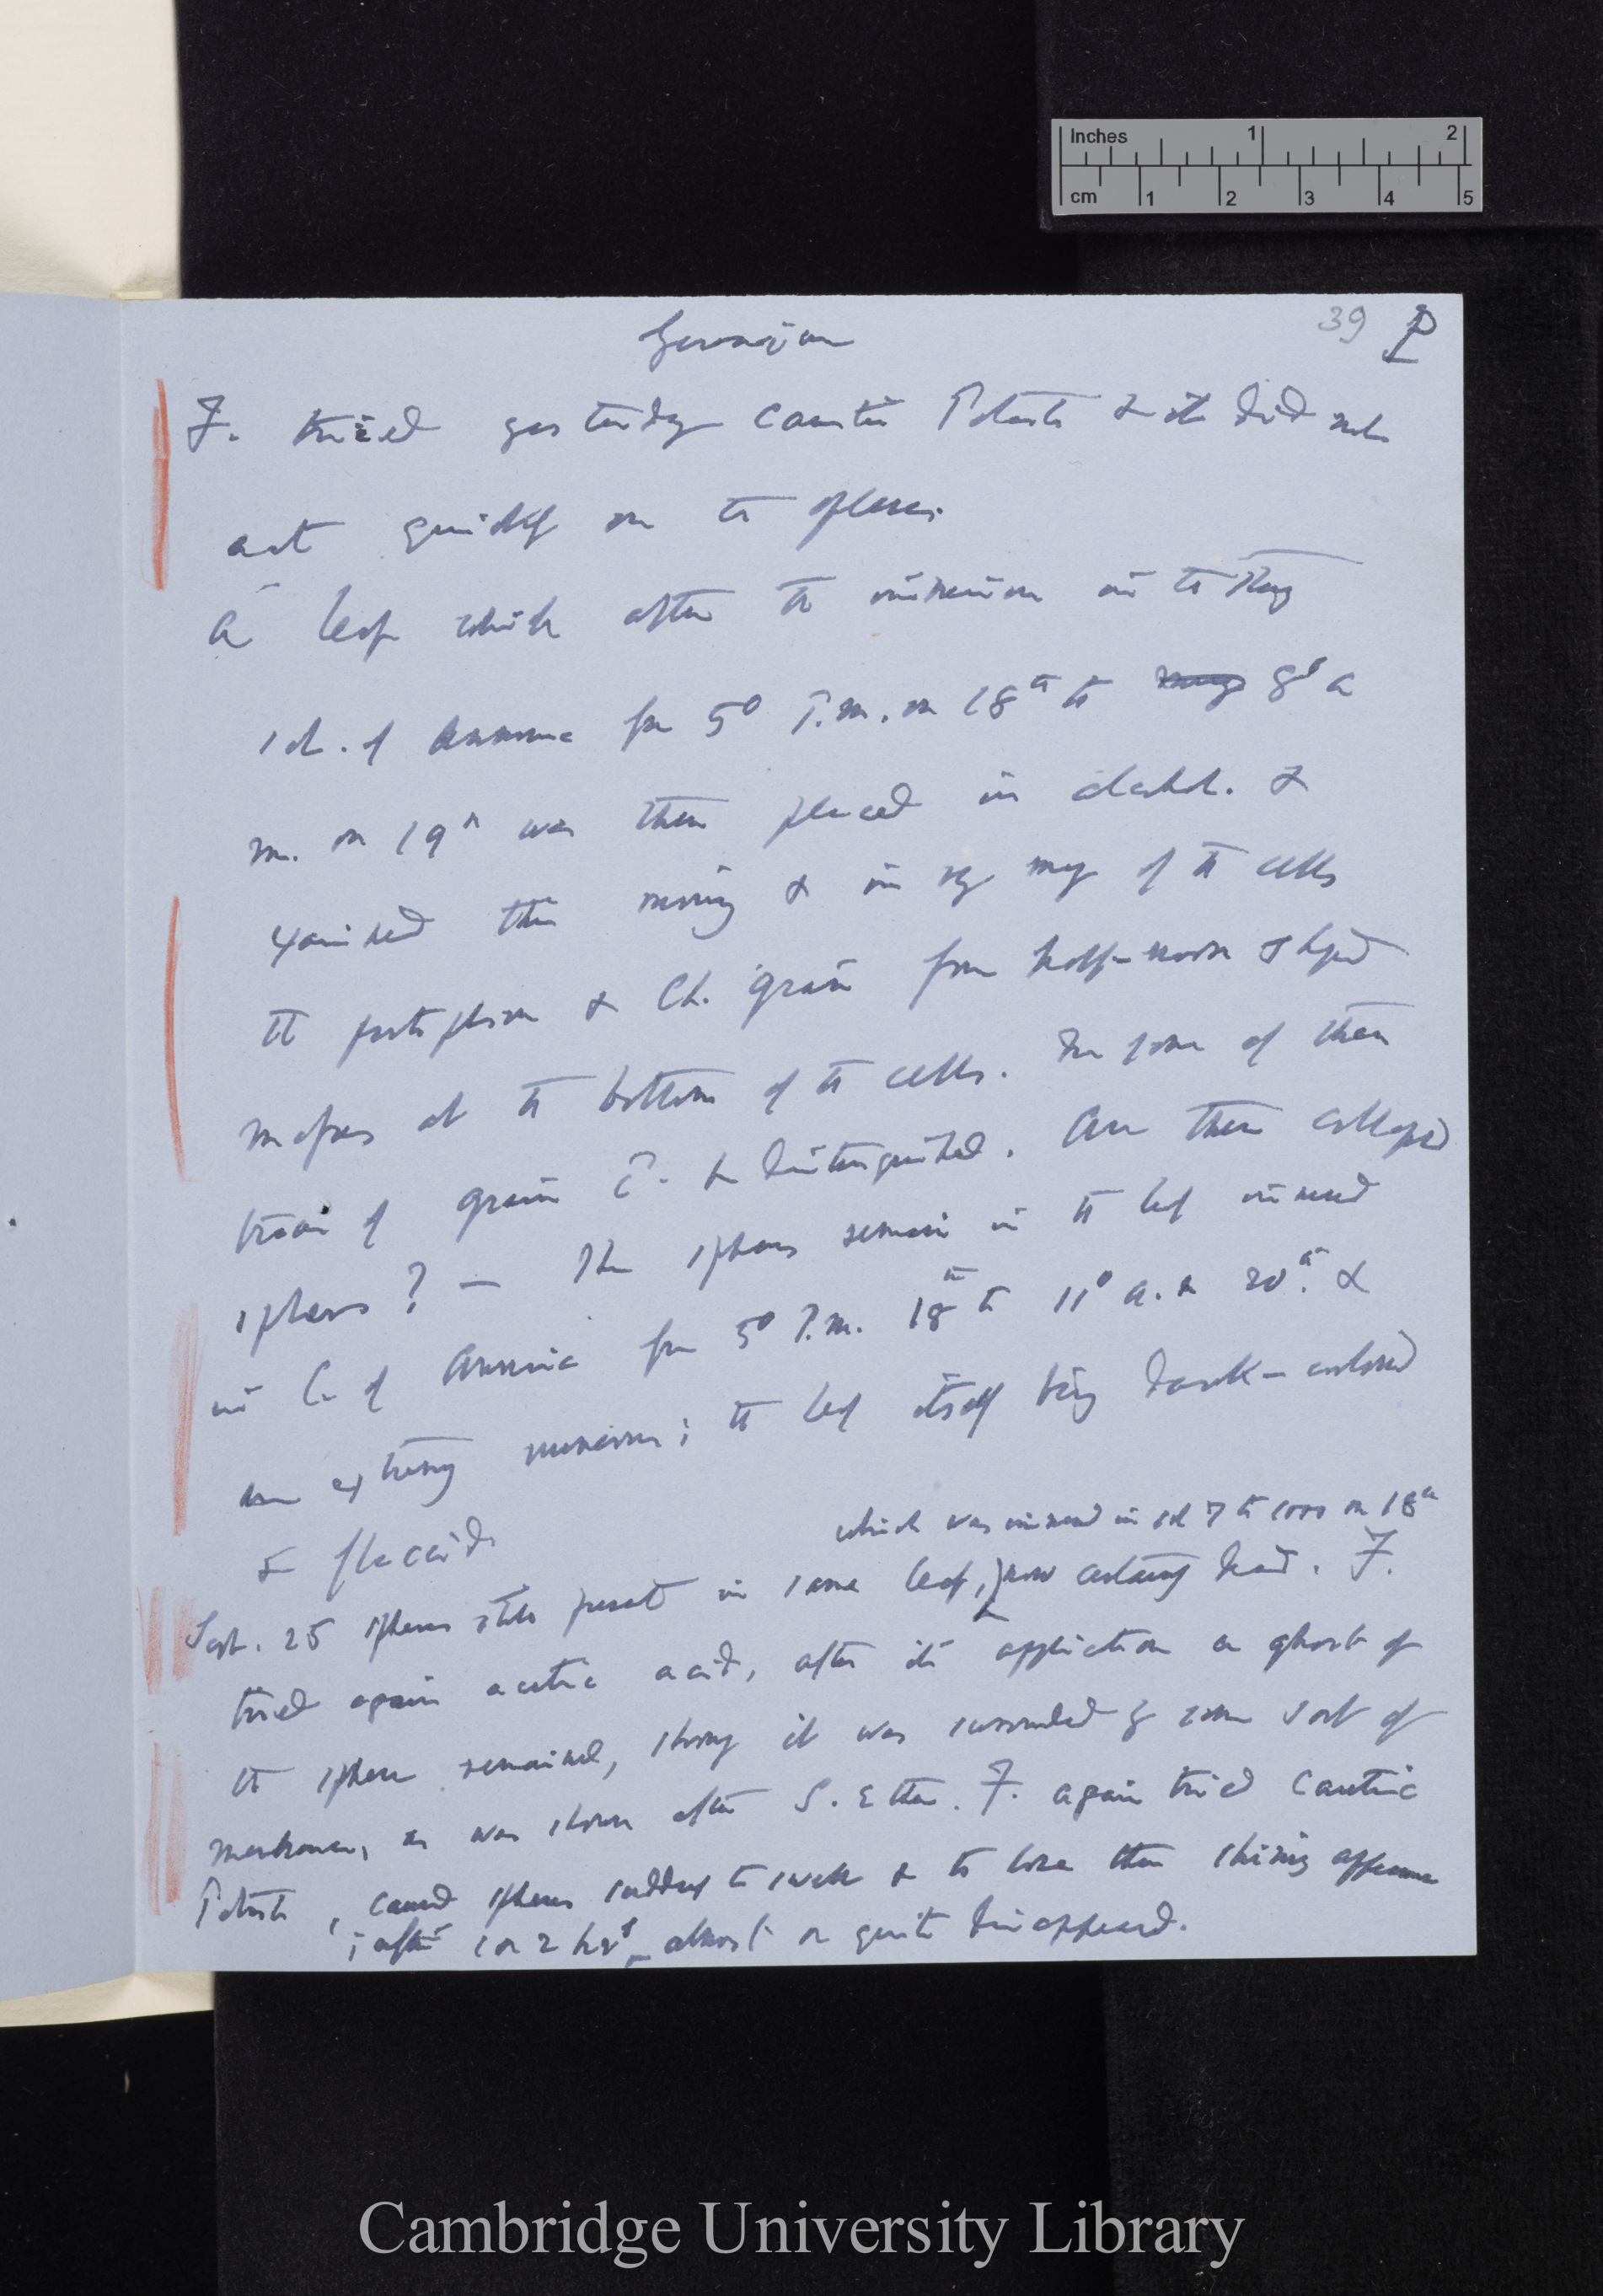 Inches 1 2
cm 1 2 3 4 5
39 P
Geranium
F. tried yesterday Caustic Potash & it did not
act quickly on the spheres.
A leaf which after the immersion in the strong
sol. of Ammonia from 5° P.m. on 18th to 8° a
m. on 19th was then placed in &
examined this morning & in very many of the cells
the protoplasm & Ch. grains form half-moon shaped
masses at the bottom of the cells. In some of them
traces of grains C. be distinguished. Are these collapsed
spheres? — The spheres remain in the leaf immersed
in C. of Ammonia from 5° P.m. 18th to 11° a.m 20th. &
are extremely numerous; the leaf itself being dark-coloured
& flaccid
which was immersed in sol 7 to 1000 on 18th
Sept. 25 spheres still present in same leaf, now certainly dead. F.
tried again acetic acid, after its application a ghost of
the sphere remained, showing it was surrounded by some sort of
membrane, as was shown after S. Ether. F. again tried Caustic
Potash, caused spheres suddenly to swell & to lose their shining appearance
; after 1 or 2 hrs almost or quite disappeared.
Cambridge University Library